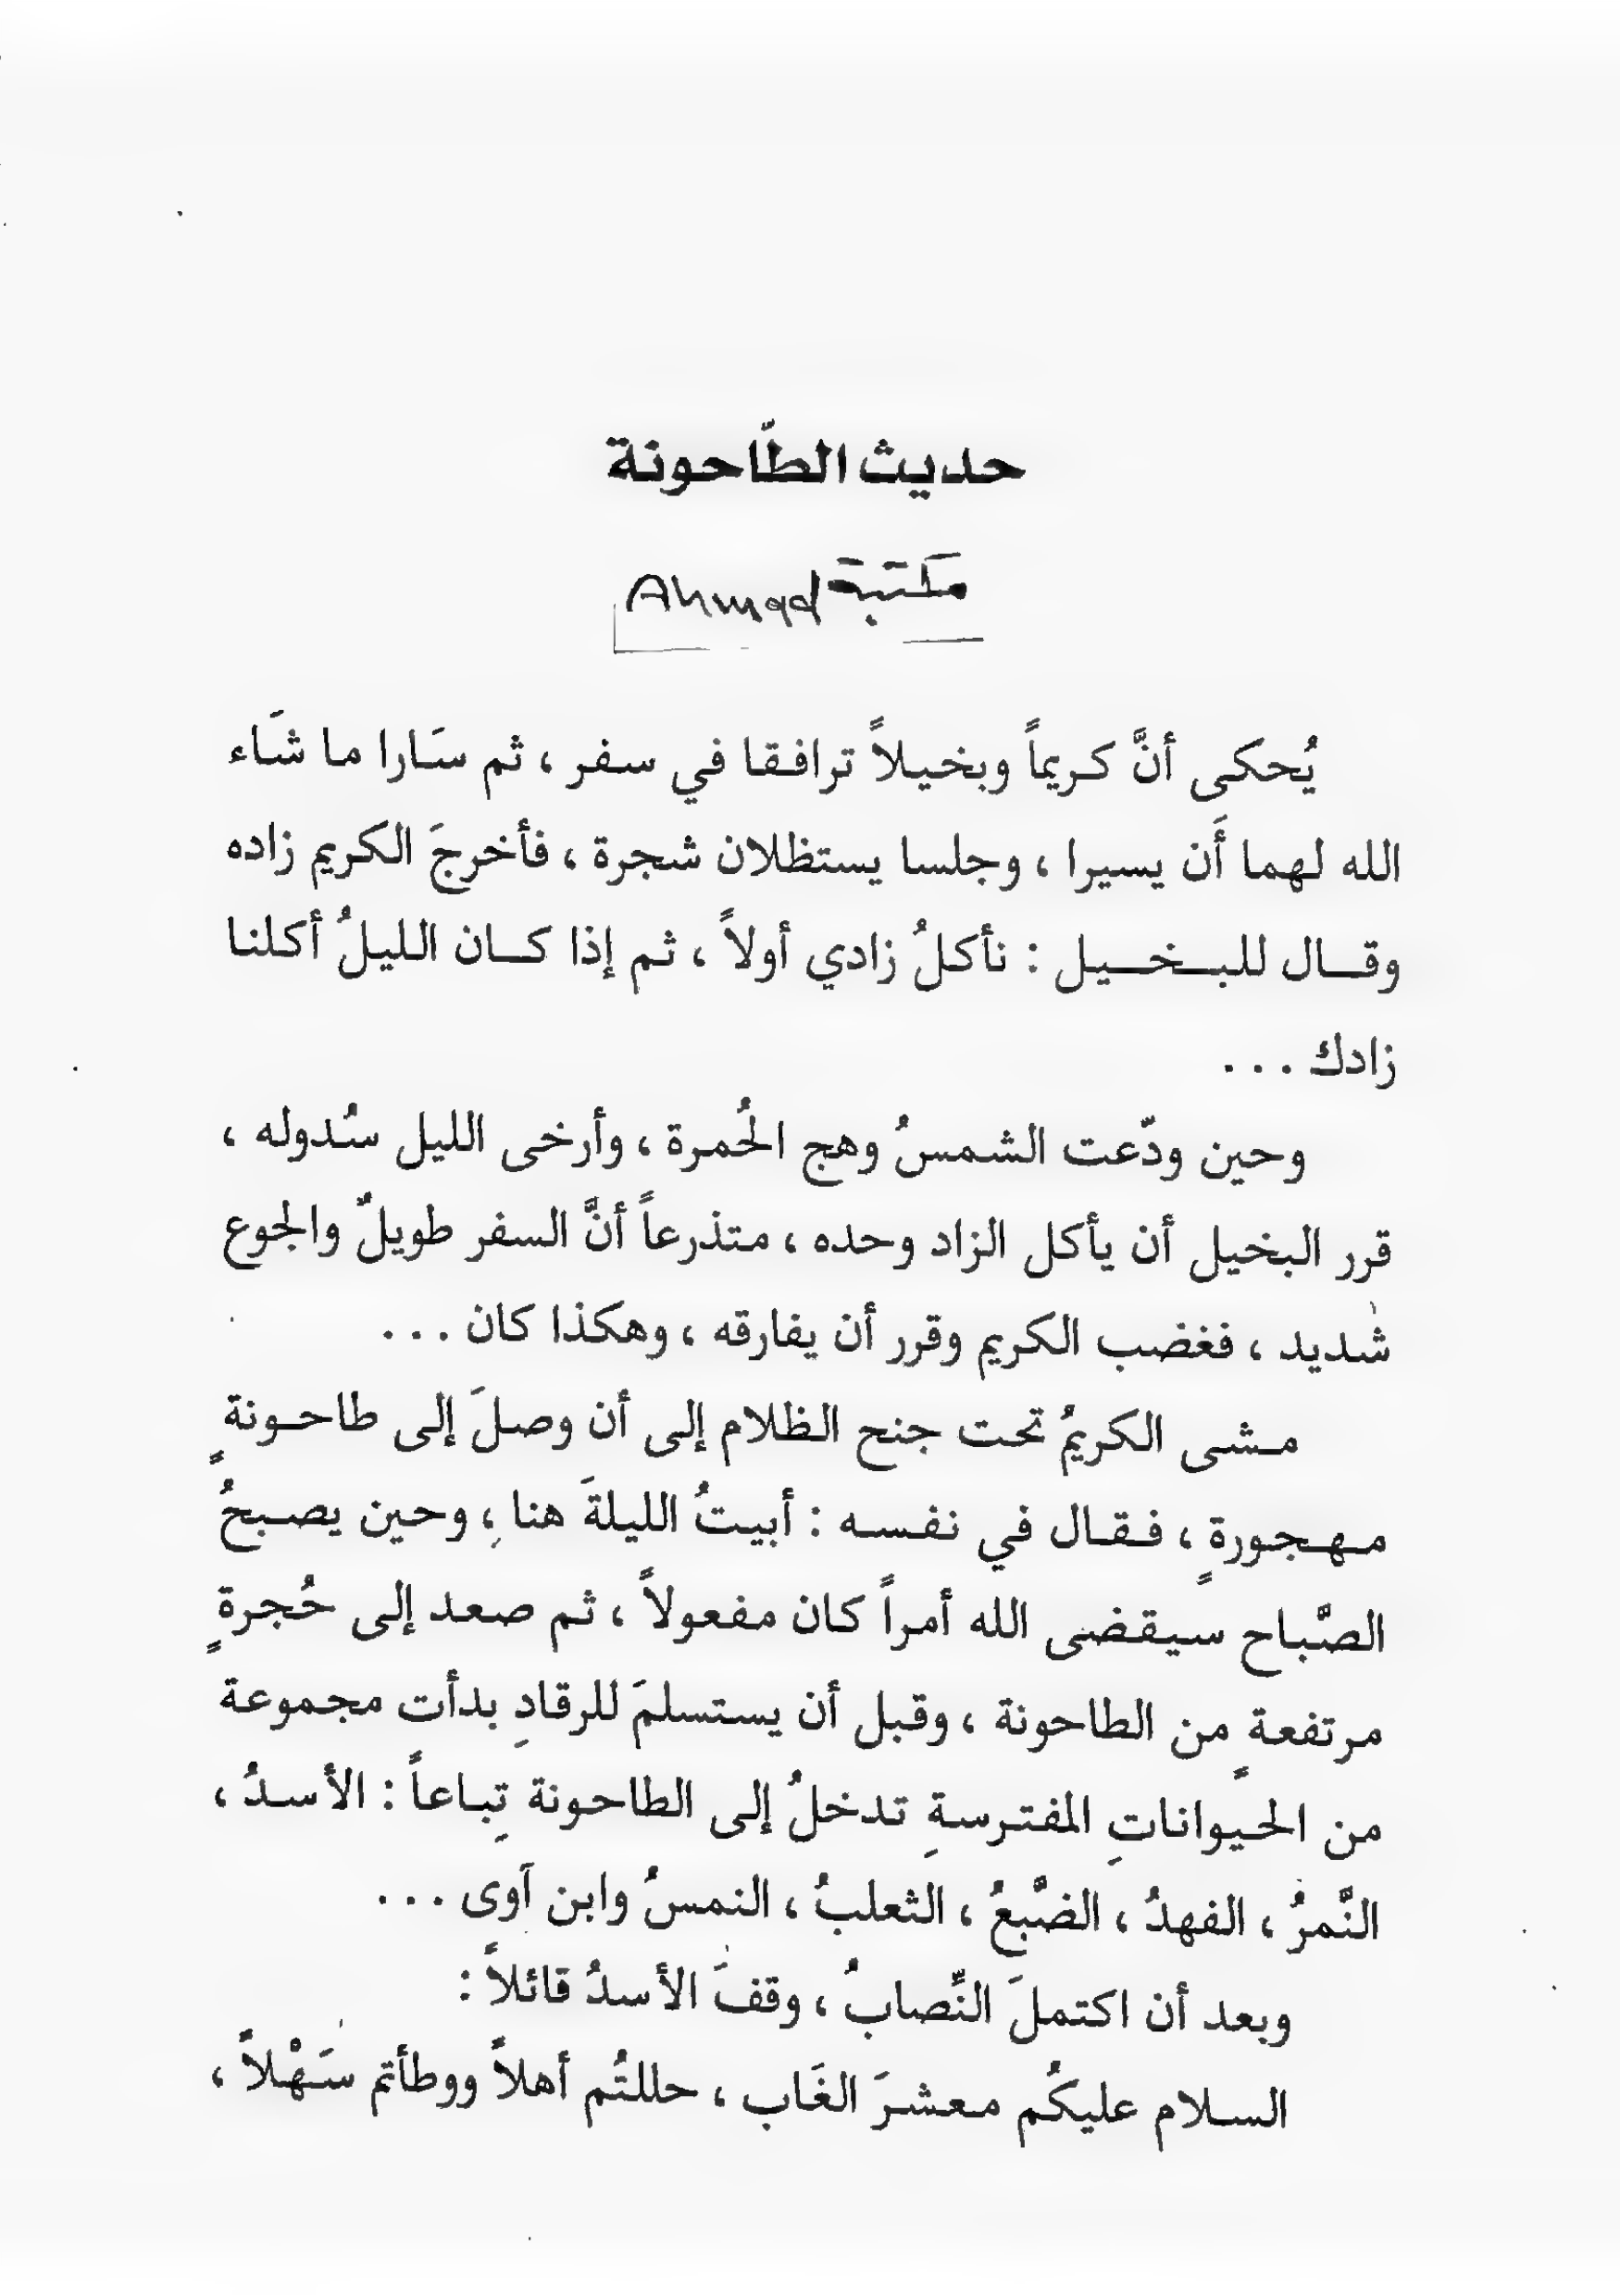 حديث الطّاحونة
مكتبة Ahmad
يُحكى أنَّ كريماً وبخيلاً ترافقا في سفر ، ثم سَارا ما شَاء
الله لهما أَن يسيرا ، وجلسا يستظلان شجرة ، فأخرجَ الكريم زاده
وقال للبخيل : نأكلُ زادي أولاً ، ثم إذا كان الليلُ أكلنا
زادك . . .
وحين ودّعت الشمسُ وهج الحُمرة ، وأرخى الليل سُدوله ،
قرر البخيل أن يأكل الزاد وحده ، متذرعاً أنَّ السفر طويلٌ والجوع
شديد ، فغضب الكريم وقرر أن يفارقه ، وهكذا كان . . .
مشى الكريمُ تحت جنح الظلام إلى أن وصلَ إلى طاحونةٍ
مهجورةٍ ، فقال في نفسه : أبيتُ الليلةَ هنا ، وحين يصبحُ
الصَّباح سيقضى الله أمراً كان مفعولاً ، ثم صعد إلى حُجرةٍ
مرتفعةٍ من الطاحونة ، وقبل أن يستسلمَ للرقادِ بدأت مجموعة
من الحيواناتِ المفترسةِ تدخلُ إلى الطاحونة تِباعاً : الأسدُ ،
النَّمرُ ، الفهدُ ، الضَّبعُ ، الثعلبُ ، النمسُ وابن آوى . . .
وبعد أن اكتملَ النِّصابُ ، وقفَ الأسدُ قائلاً :
السلام عليكُم معشرَ الغَاب ، حللتُم أهلاً ووطأتم سَهْلاً ،